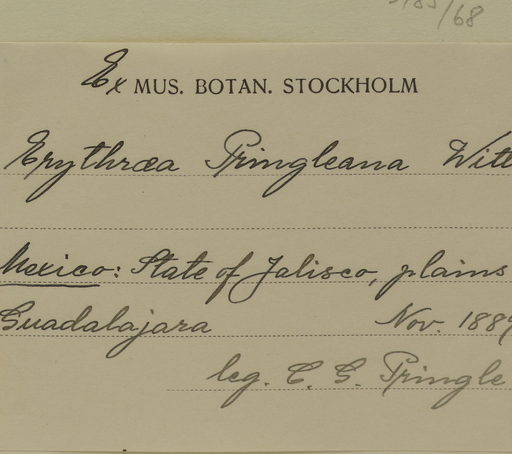 /68
Ex MUS. BOTAN. STOCKHOLM
Erythræa Pringleana Witt
Mexico: State of Jalisco, plains
Guadalajara Nov. 1889
leg. C. G. Pringle